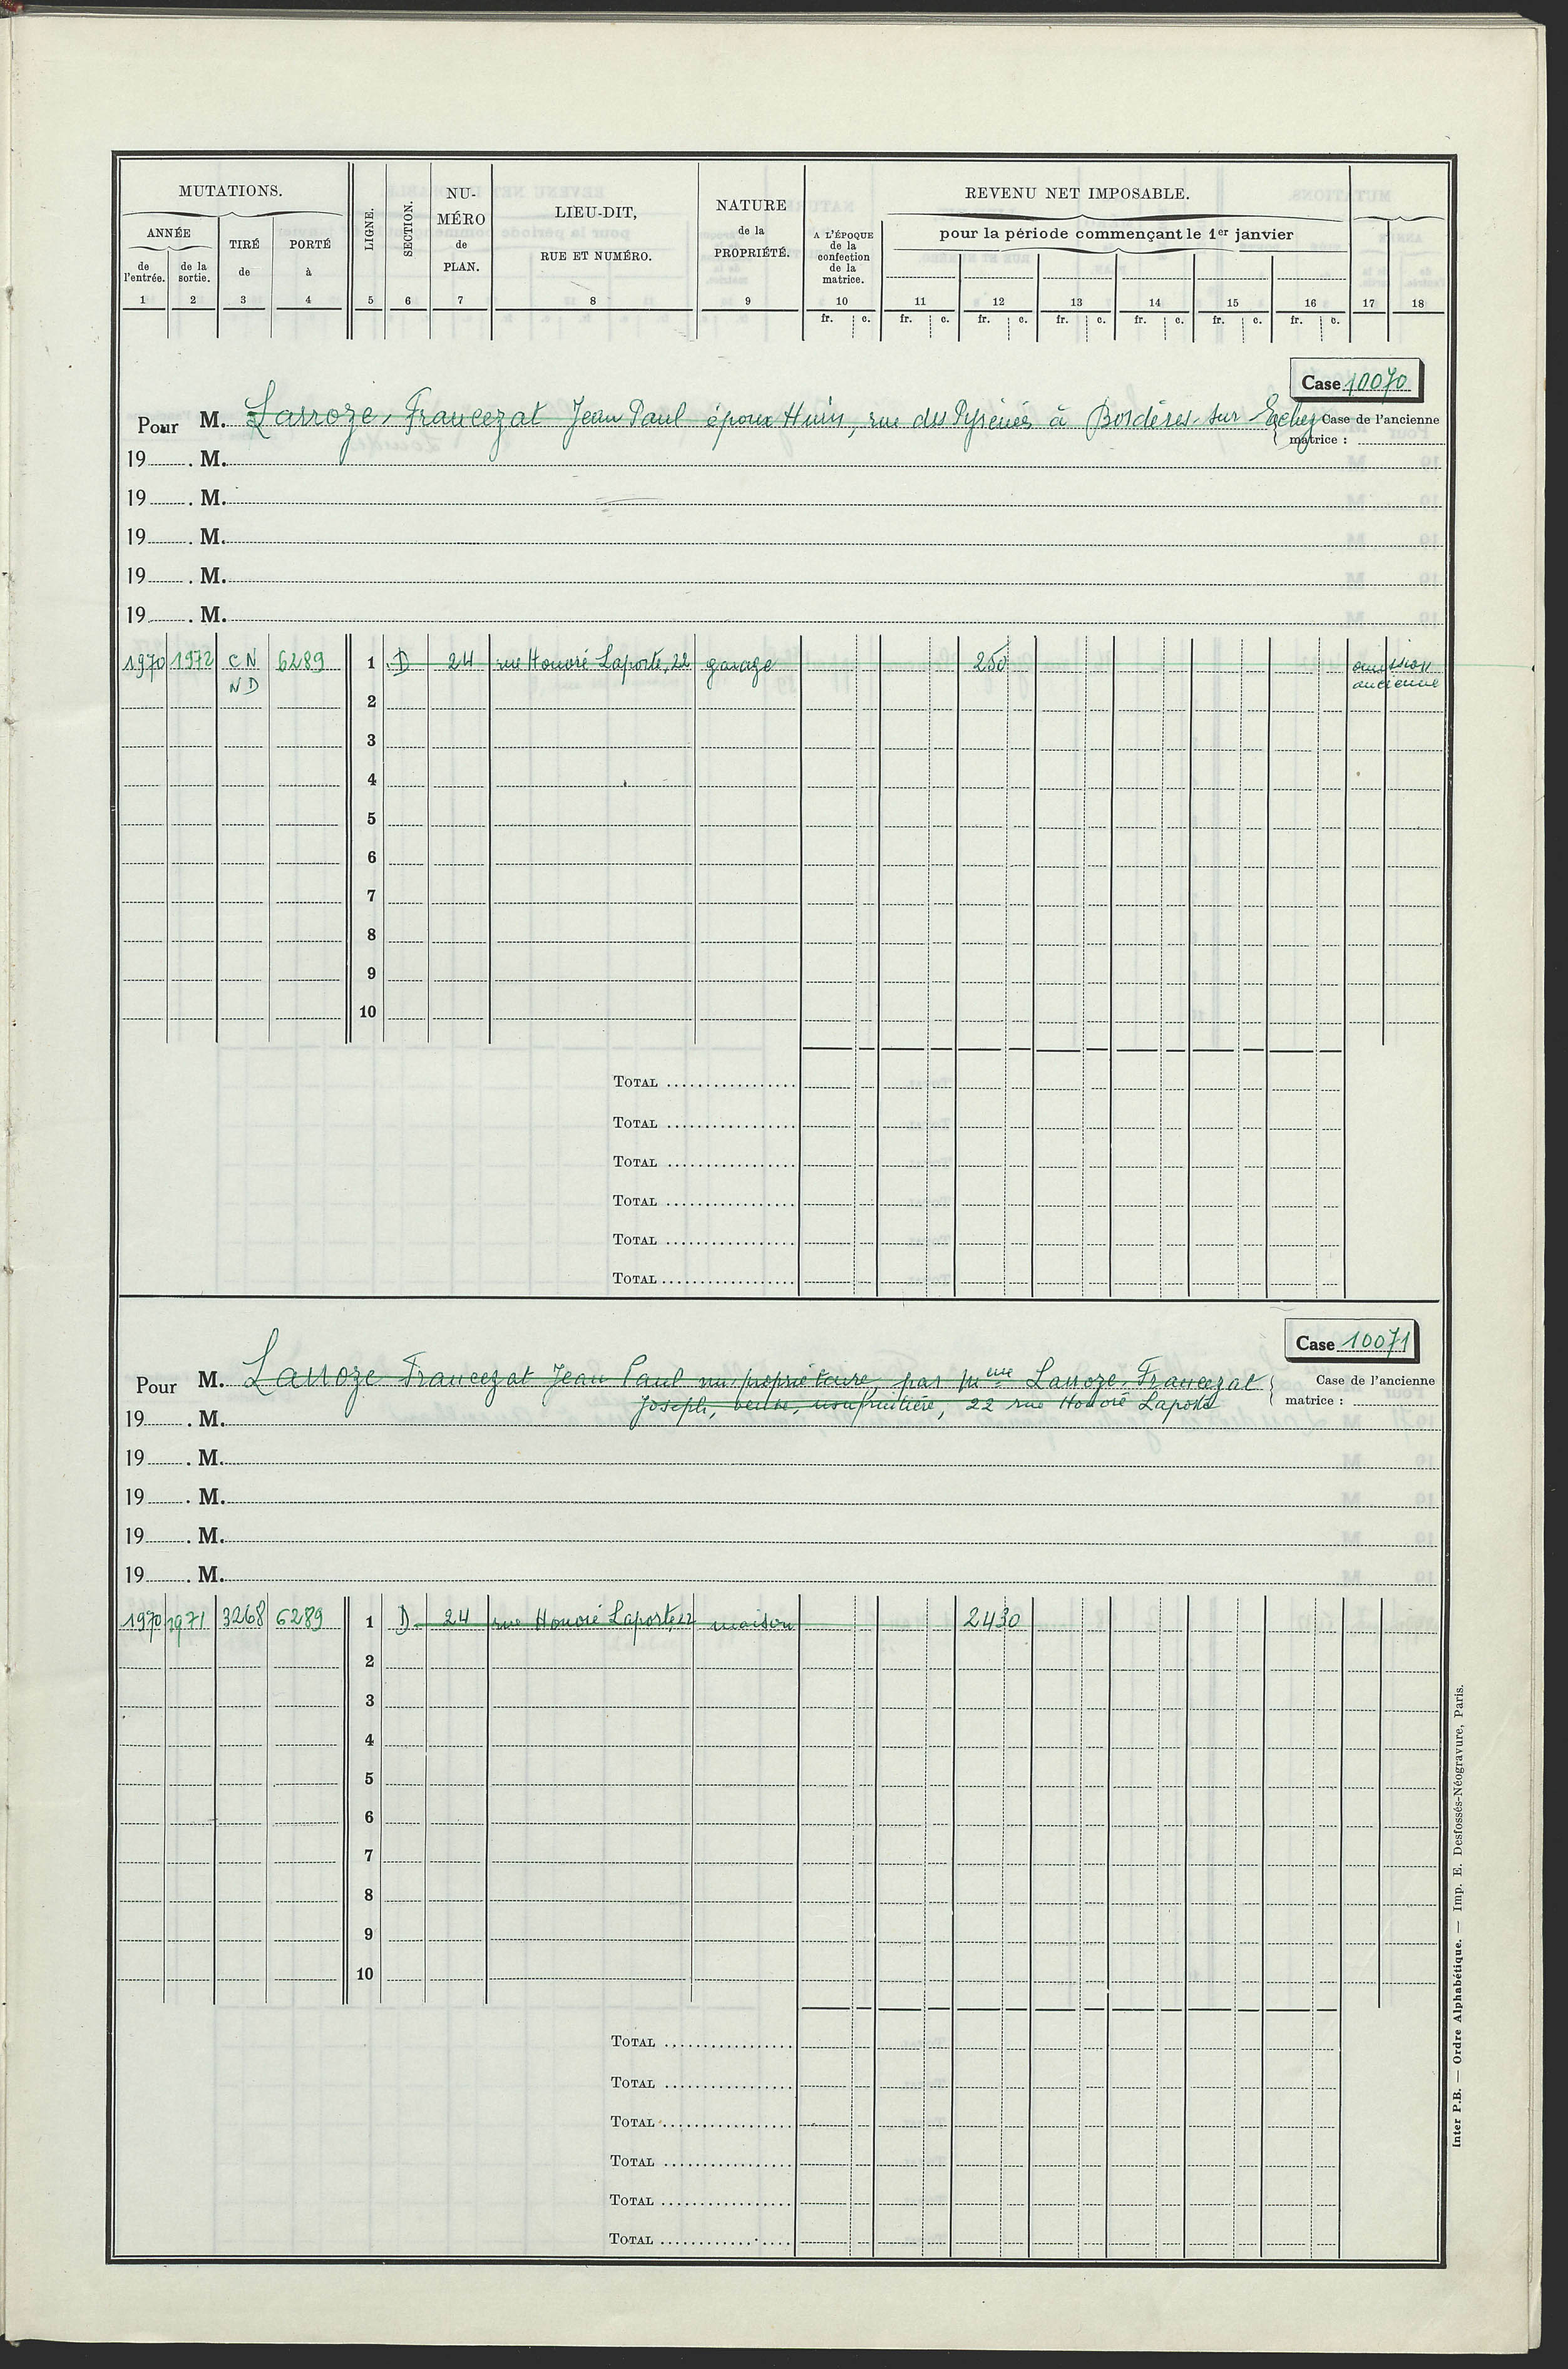 MUTATIONS.
ANNÉE
de l'entrée.
de la sortie.
TIRÉ de
PORTÉ à
LIGNE.
SECTION.
NU-MÉRO de PLAN.
LIEU-DIT, RUE ET NUMÉRO.
NATURE de la PROPRIÉTÉ.
REVENU NET IMPOSABLE.
A L'ÉPOQUE de la confection de la matrice.
pour la période commençant le 1er janvier
1 2 3 4 5 6 7 8 9 10 11 12 13 14 15 16 17 18
fr. c. fr. c. fr. c. fr. c. fr. c. fr. c. fr. c.
Case 10070
Pour M. Larroze-Francezat Jean Paul époux Huin, rue des Pyrénées à Bordères-sur-Echez
Case de l'ancienne matrice :
19 . M.
19 . M.
19 . M.
19 . M.
19 . M.
1970 1972 CN 6289 1 D 24 rue Honoré Laporte, 22 garage 250 omission
ND ancienne
2
3
4
5
6
7
8
9
10
TOTAL
TOTAL
TOTAL
TOTAL
TOTAL
TOTAL
Case 10071
Pour M. Larroze-Francezat Jean Paul nu-propriétaire, par Mme Larroze-Francezat
Case de l'ancienne matrice :
Joseph, veuve, usufruitière, 22 rue Honoré Laporte
19 . M.
19 . M.
19 . M.
19 . M.
19 . M.
1970 1971 3268 6289 1 D 24 rue Honoré Laporte, 22 maison 2430
2
3
4
5
6
7
8
9
10
TOTAL
TOTAL
TOTAL
TOTAL
TOTAL
TOTAL
Inter P.B. — Ordre Alphabétique. — Imp. E. Desfossés-Néogravure, Paris.